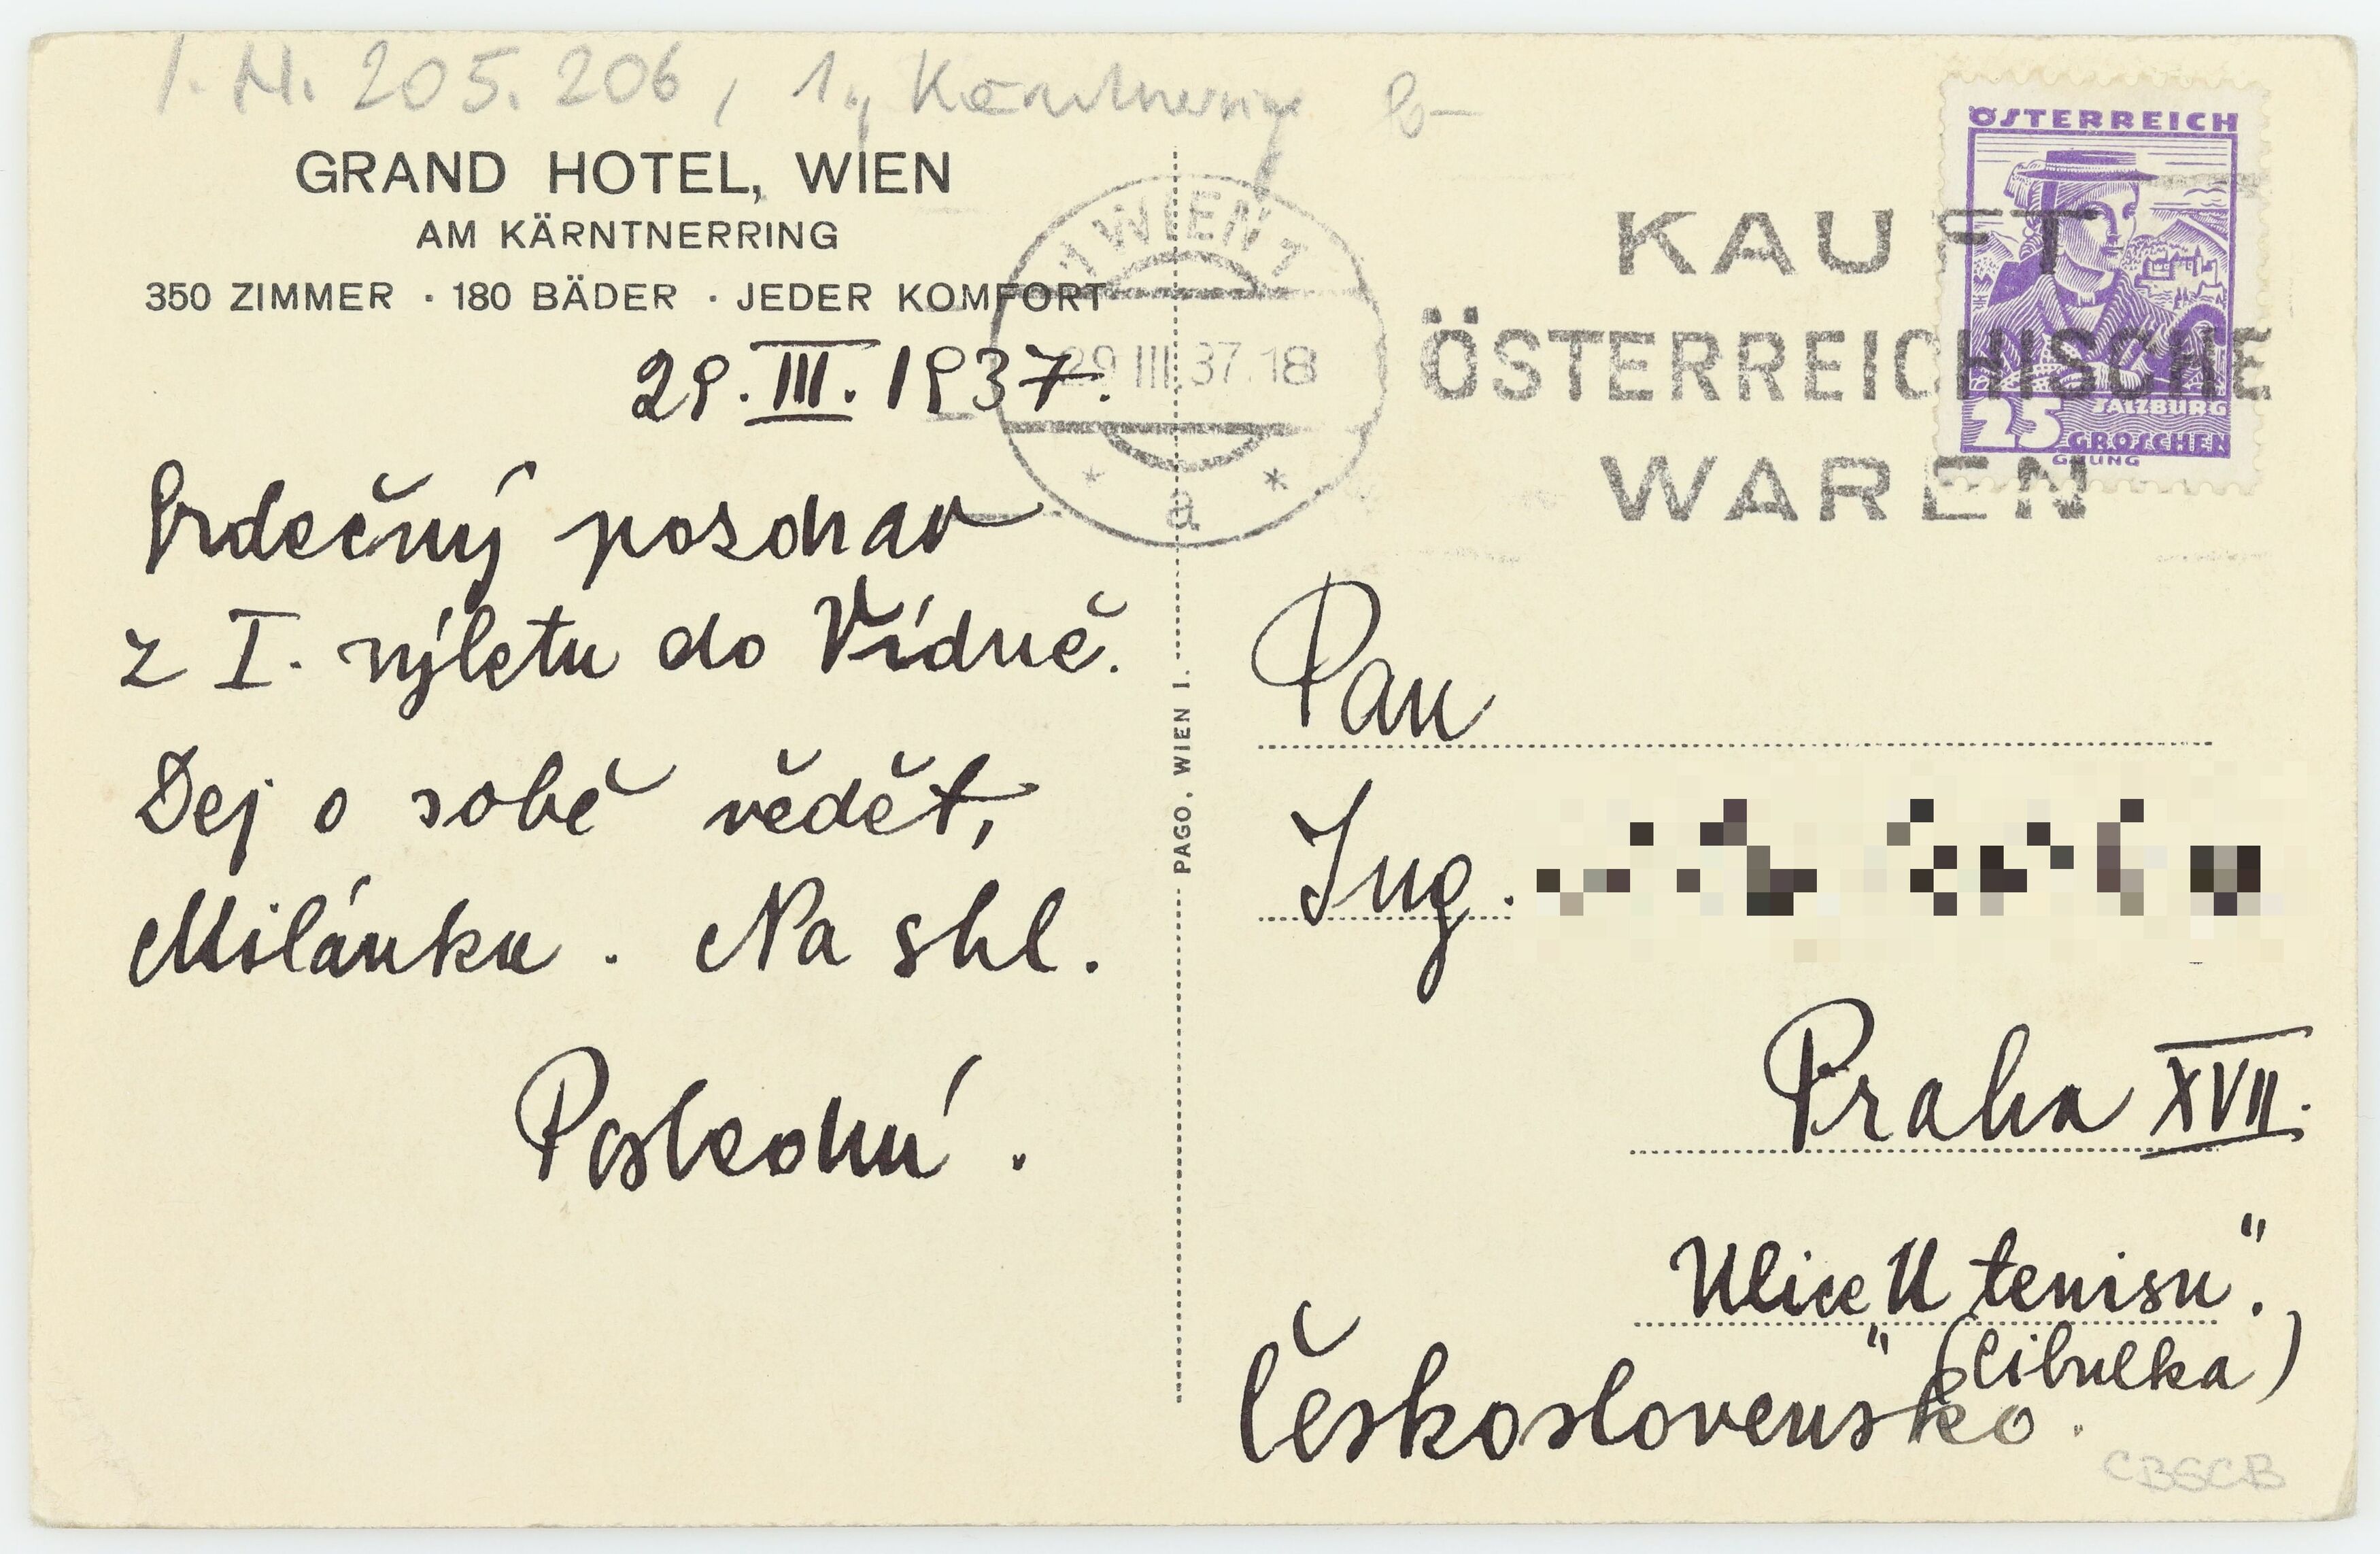 I. N. 205.206, 1., Kärntnerring
GRAND HOTEL, WIEN
AM KÄRNTNERRING
350 ZIMMER · 180 BÄDER · JEDER KOMFORT
29. III. 1937.
Srdečný pozdrav
z I. výletu do Vídně.
Dej o sobě vědět,
Milánku. Na shl.
Poslední.
PAGO. WIEN I.
1 WIEN 1
29 III 37. 18
* a *
KAUFT
ÖSTERREICHISCHE
WAREN
ÖSTERREICH
25 SALZBURG
GROSCHEN
Pan
Ing.
Praha XVII.
Ulice "U tenisu".
(Cibulka)
Československo.
CBSCB